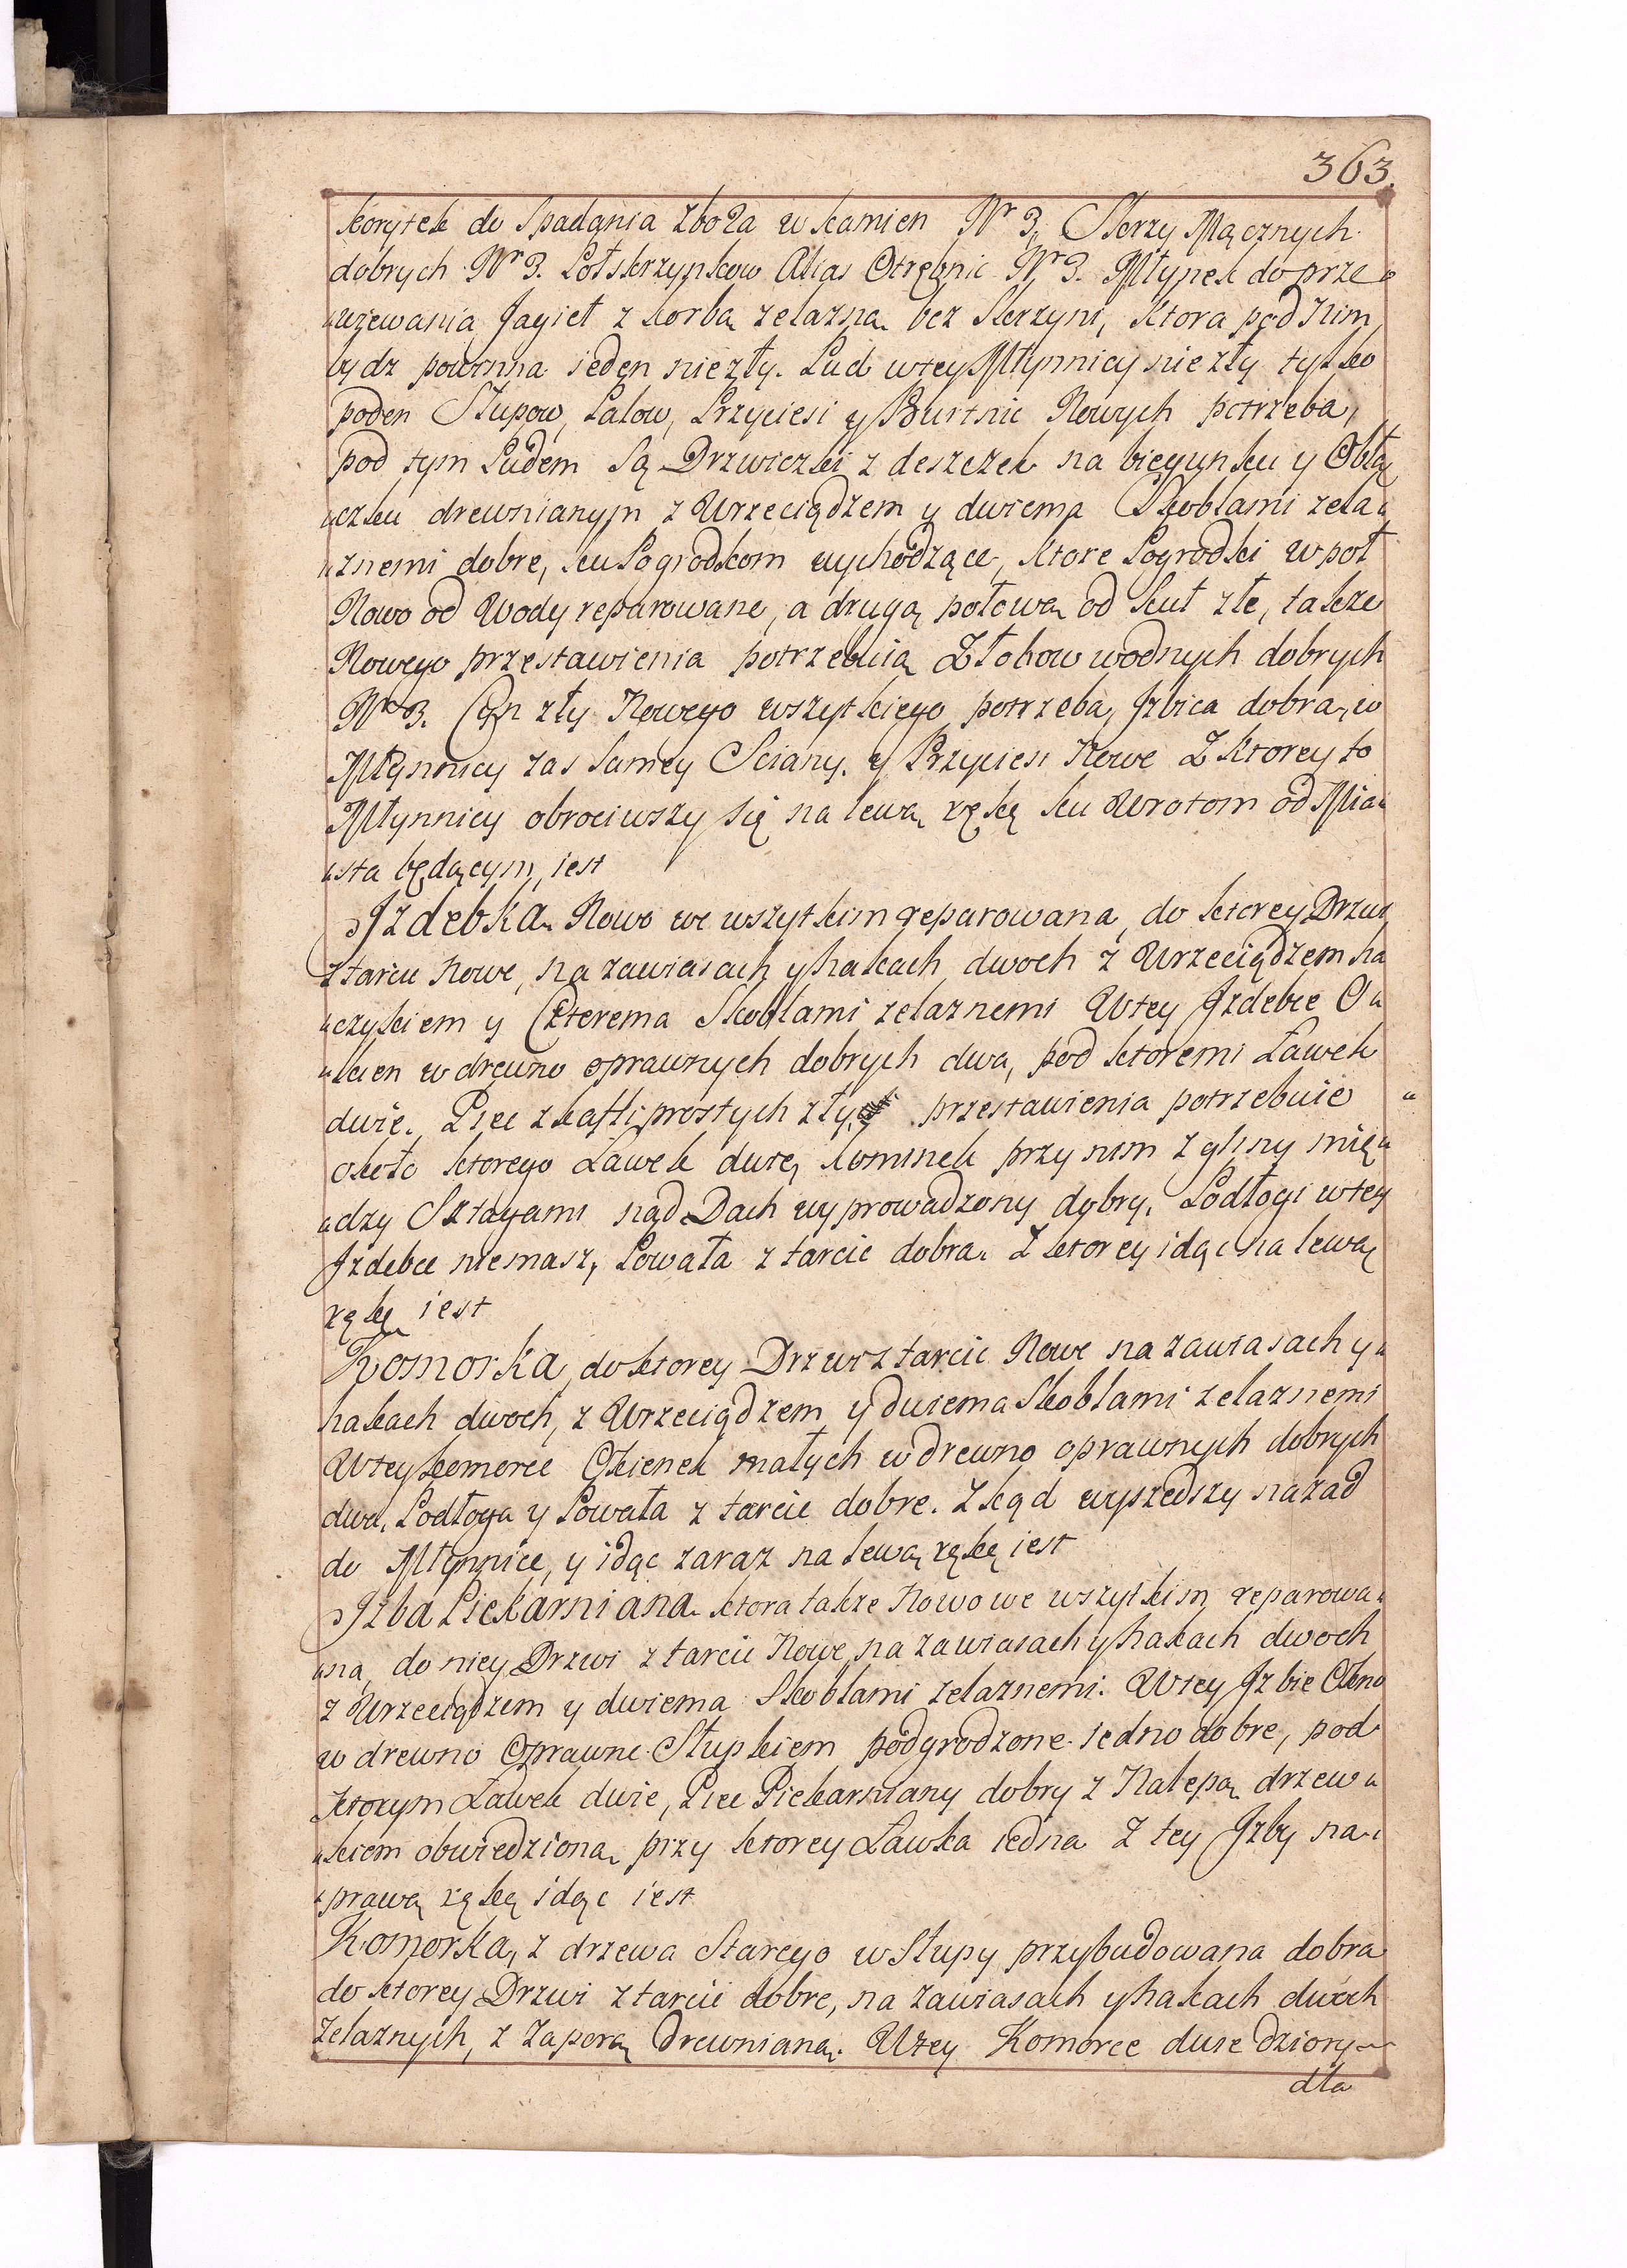 363.
korytek do spadania zboża w kamien Nr 3. Skrzy Mącznych
dobrych Nr 3. Połskrzynkow Alias Otrębnic Nr 3. Młynek do prze„
„wiewania Jagieł z korbą zelazną bez Skrzyni, ktora pod Nim
bydz powinna ieden niezły. Pud wtey Młynnicy niezły tylko
poden Słupow, Palow, Przyciesi y Burtnic Nowych potrzeba,
pod tym Pudem Są Drzwiczki z deszczek na biegunku y Obłą
„czku drewnianym z Wrzeciądzem y dwiema Skoblami zela„
„znemi dobre, ku Pogrodkom wychodzące, ktore Pogrodki w poł
Nowo od Wody reparowane, a drugą połową od kuł złe, takze
Nowego przestawienia potrzebuią Złobow wodnych dobrych
Nr 3. Czn zły Nowego wszytkiego potrzeba, Jzbica dobra, w
Młynnicy zas samey Sciany. y Przyciesi Nowe Z ktorey to
Młynnicy obrociwszy się na lewą rękę ku Wrotom od Mia„
„sta będącym, iest
Jzdebka. Nowo we wszytkim reparowana, do ktorey Drzwi
z tarcic Nowe, na zawiasach y hakach dwoch z Wrzeciądzem ha
„czykiem y Czterema Skoblami zelaznemi Wtey Jzdebce O„
„kien w drewno oprawnych dobrych dwa, pod ktoremi Ławek
dwie. Piec z kafli prostych zły, przestawienia potrzebuie
około ktorego Ławek dwie, kominek przy nim z gliny mię„
„dzy Sztagami nad Dach wyprowadzony dobry. Podłogi wtey
Jzdebce niemasz, Powała z tarcic dobra. Z ktorey idąc na lewą
rękę iest
Komorka, do ktorey Drzwi z tarcic Nowe na zawiasach y„
hakach dwoch, z Wrzeciądzem y dwiema Skoblami zelaznemi
Wtey komorce Okienek małych w drewno oprawnych dobrych
dwa, Podłoga y Powała z tarcic dobre. Zkąd wyszedszy nazad
do Młynnice, y idąc zaraz na lewą rękę iest
Jzba Piekarniana. ktora takze Nowo we wszytkim reparowa„
„na, do niey Drzwi z tarcic Nowe, na zawiasach y hakach dwoch
z Wrzeciądzem y dwiema Skoblami zelaznemi. Wtey Jzbie Okno
w drewno Oprawne Słupkiem podgrodzone iedno dobre, pod
ktorym Ławek dwie, Piec Piekarniany dobry z Nalepą drzew„
„kiem obwiedzioną, przy ktorey Ławka iedna Z tey Jzby na„
„prawą rękę idąc iest
Komorka, z drzewa Starego w Słupy przybudowana dobra
do ktorey Drzwi z tarcic dobre, na zawiasach y hakach dwoch
Zelaznych, z Zaporą Drewnianą. Wtey Komorce dwie dziory
dla